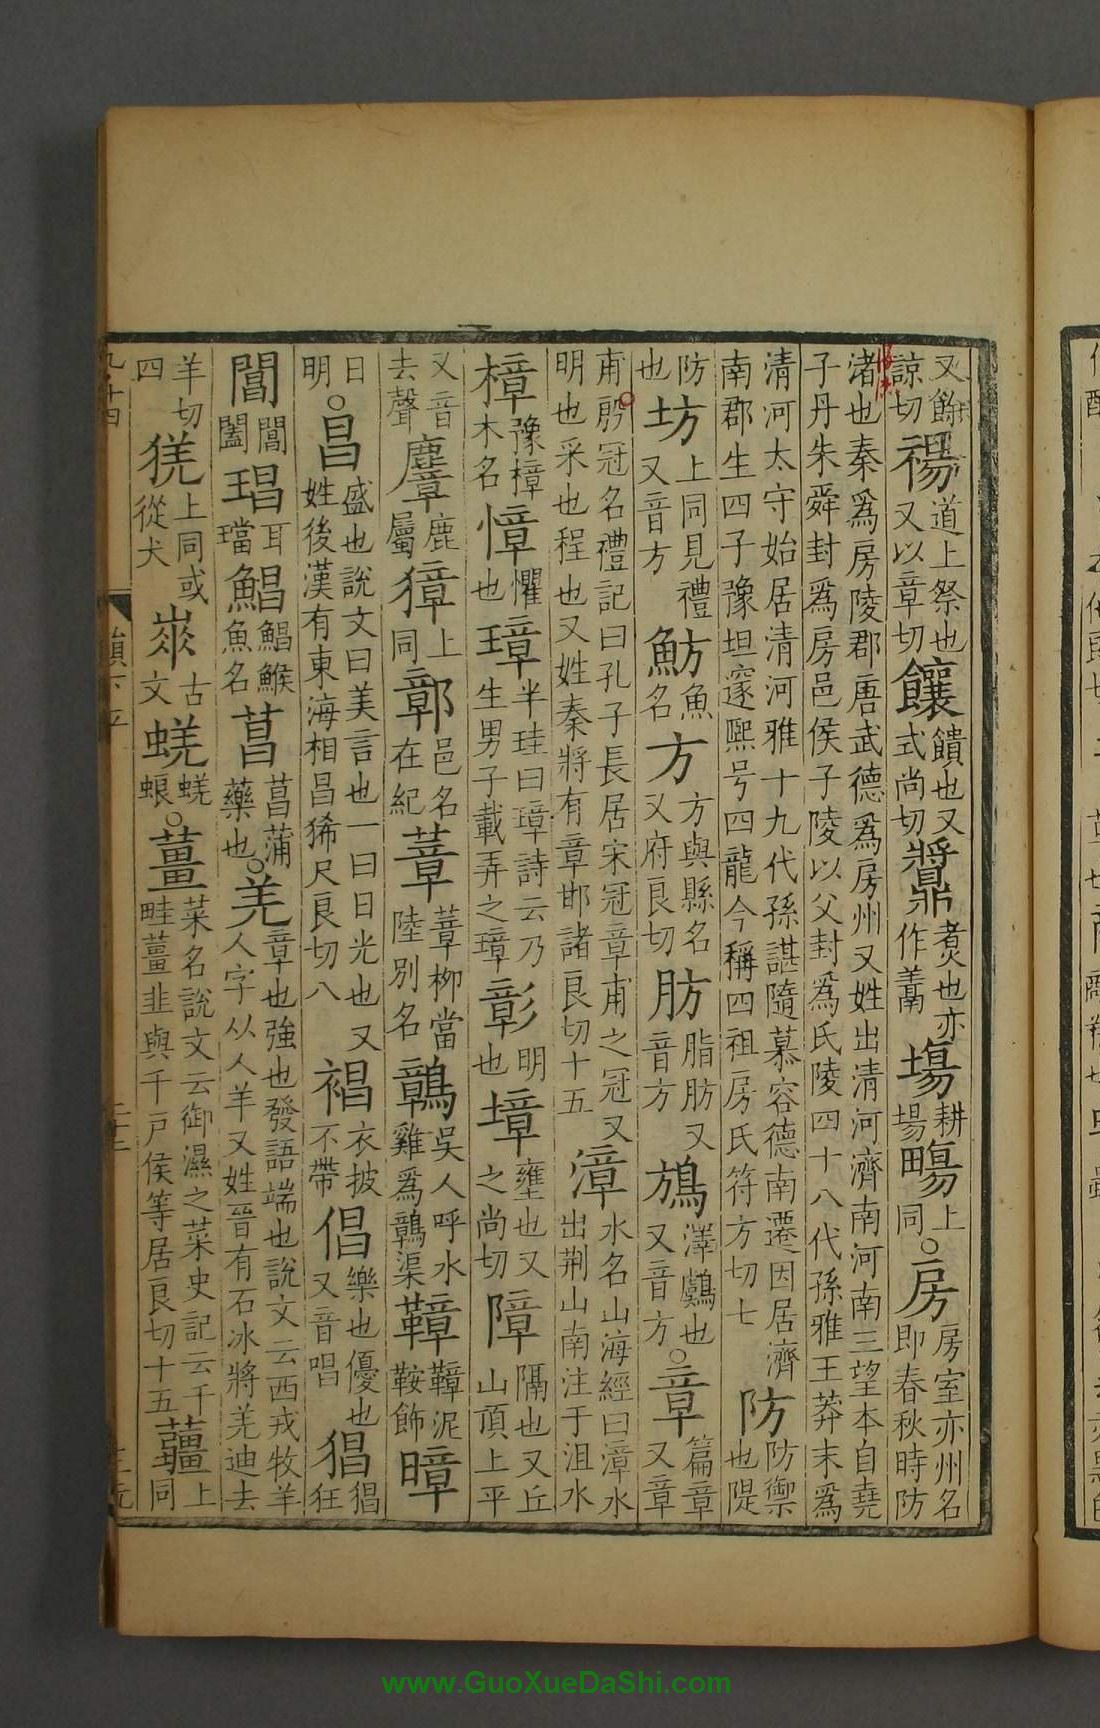 又餘諒切禓道上祭也又以章切饟饋也又式尚切䵼煮也亦作鬺塲耕塲畼上同○房房室亦州名即春秋時防
渚也秦爲房陵郡唐武德爲房州又姓出清河濟南河南三望本自堯子丹朱舜封爲房邑侯子陵以父封爲氏陵四十八代孫雅王莽末爲
清河太守始居清河雅十九代孫諶隨慕容德南遷因居濟南郡生四子豫坦邃熙号四龍今稱四祖房氏符方切七防防禦也隄
防也坊上同見禮又音方魴魚名方方與縣名又府良切肪脂肪又音方鴋澤鸆也又音方○章篇章又章
甫殷冠名禮記曰孔子長居宋冠章甫之冠又明也采也程也又姓秦將有章邯諸良切十五漳水名山海經曰漳水出荆山南注于沮水
樟豫樟木名慞懼也璋半珪曰璋詩云乃生男子載弄之璋彰明也墇壅也又之尚切障隔也又丘山頂上平
又音去聲麞鹿屬獐上同鄣邑名在紀蔁蔁柳當陸別名鷾吳人呼水雞爲鷾渠鞾鞾泥鞍飾暲
日明○昌盛也說文曰美言也一曰日光也又姓後漢有東海相昌狶尺良切八裮衣披不帶倡樂也優也又音唱猖猖狂
閶閶闔琩耳璫鯧鯧鯸魚名菖菖蒲藥也○羌章也強也發語端也說文云西戎牧羊人字从人羊又姓晉有石冰將羌迪去
羊切四猐上同或從犬𡶛古文蜣蜣蜋○薑菜名說文云御濕之菜史記云千畦薑韭與千戶侯等居良切十五䕬上同
韻下平
二十二
www.GuoXueDaShi.com